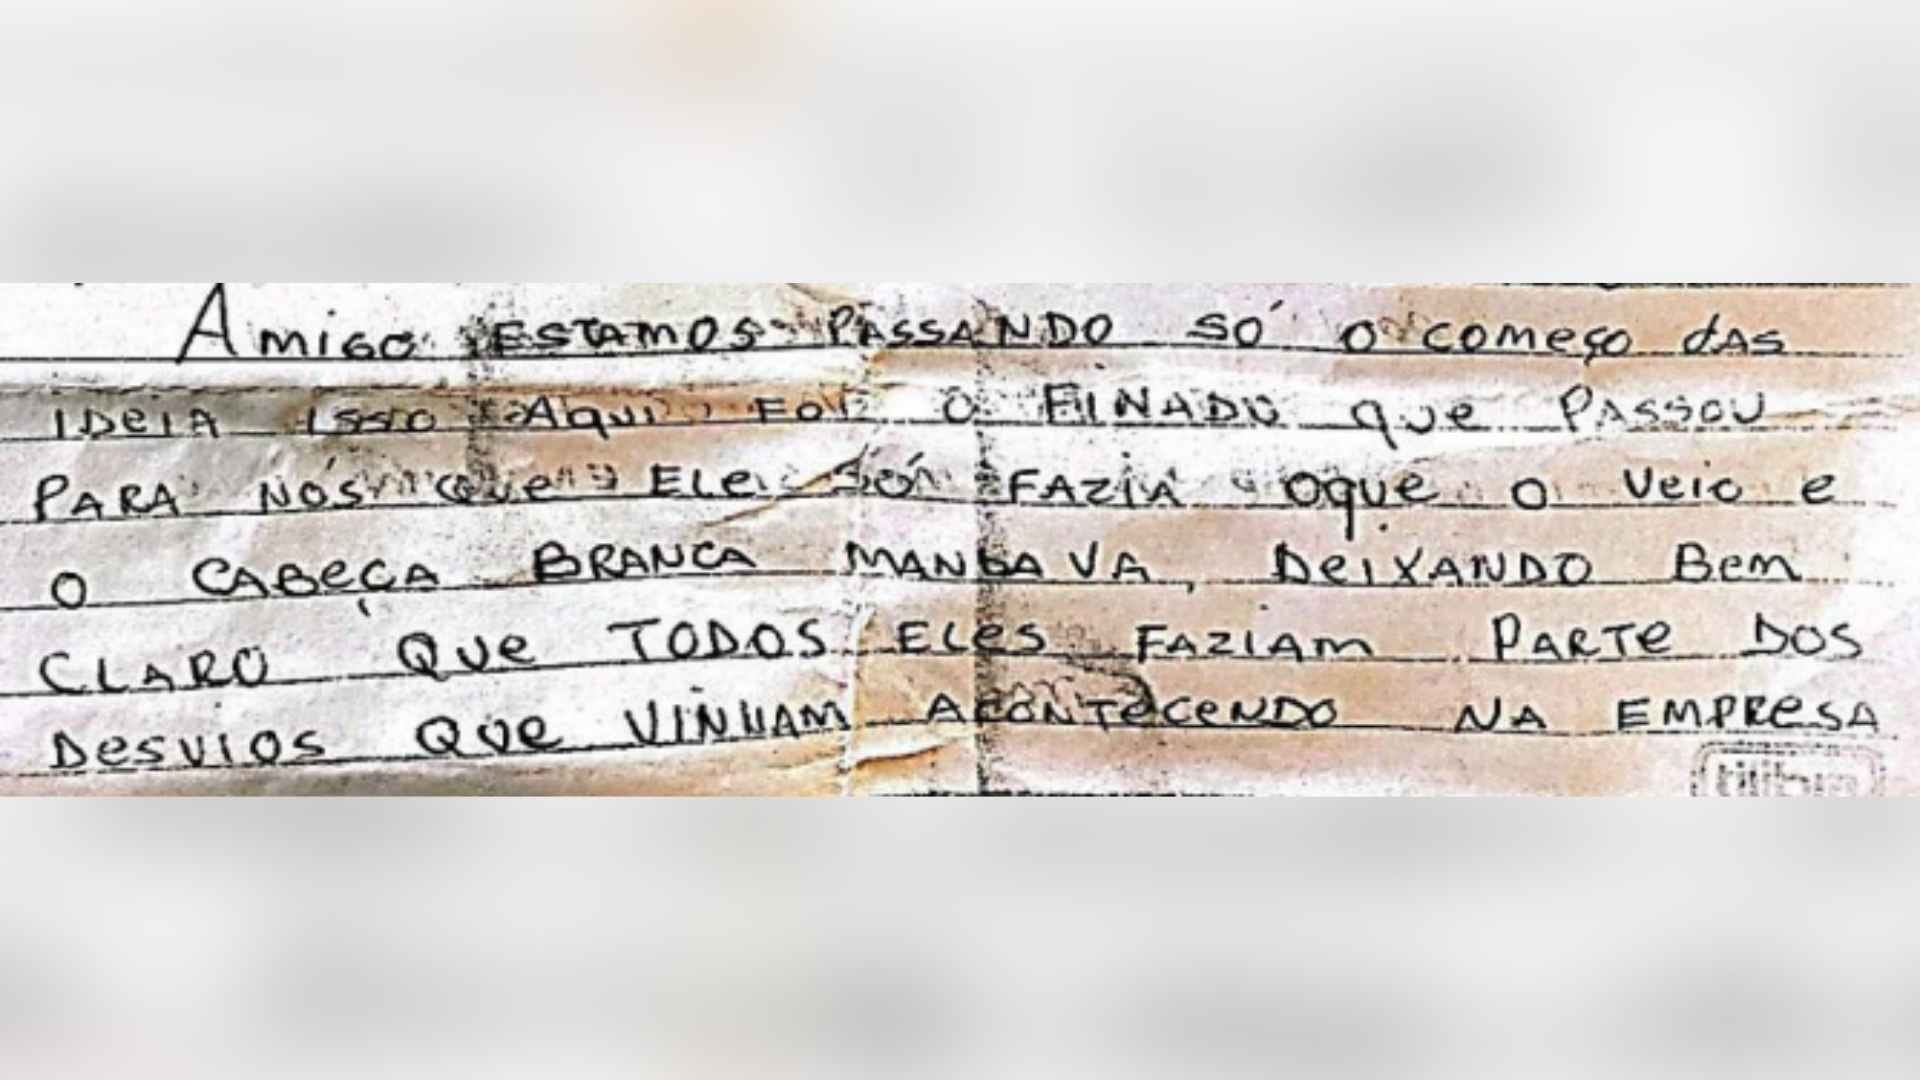 Amigo ESTAMOS PASSANDO SÓ O COMEÇO dAS
IDeIA ISSO AQuI FOI O FINADO que PASSOU
PARA NÓS Que ELe SÓ FAZIA Oque O Veio e
O CABeÇA BRANCA MANDAVA, DeIXANDO Bem
CLARO QUe TODOS ELeS FAZIAm PARTe DOS
DeSVIOS QUe VINHAM ACONTeCeNDO NA EMPReSA
tilibra